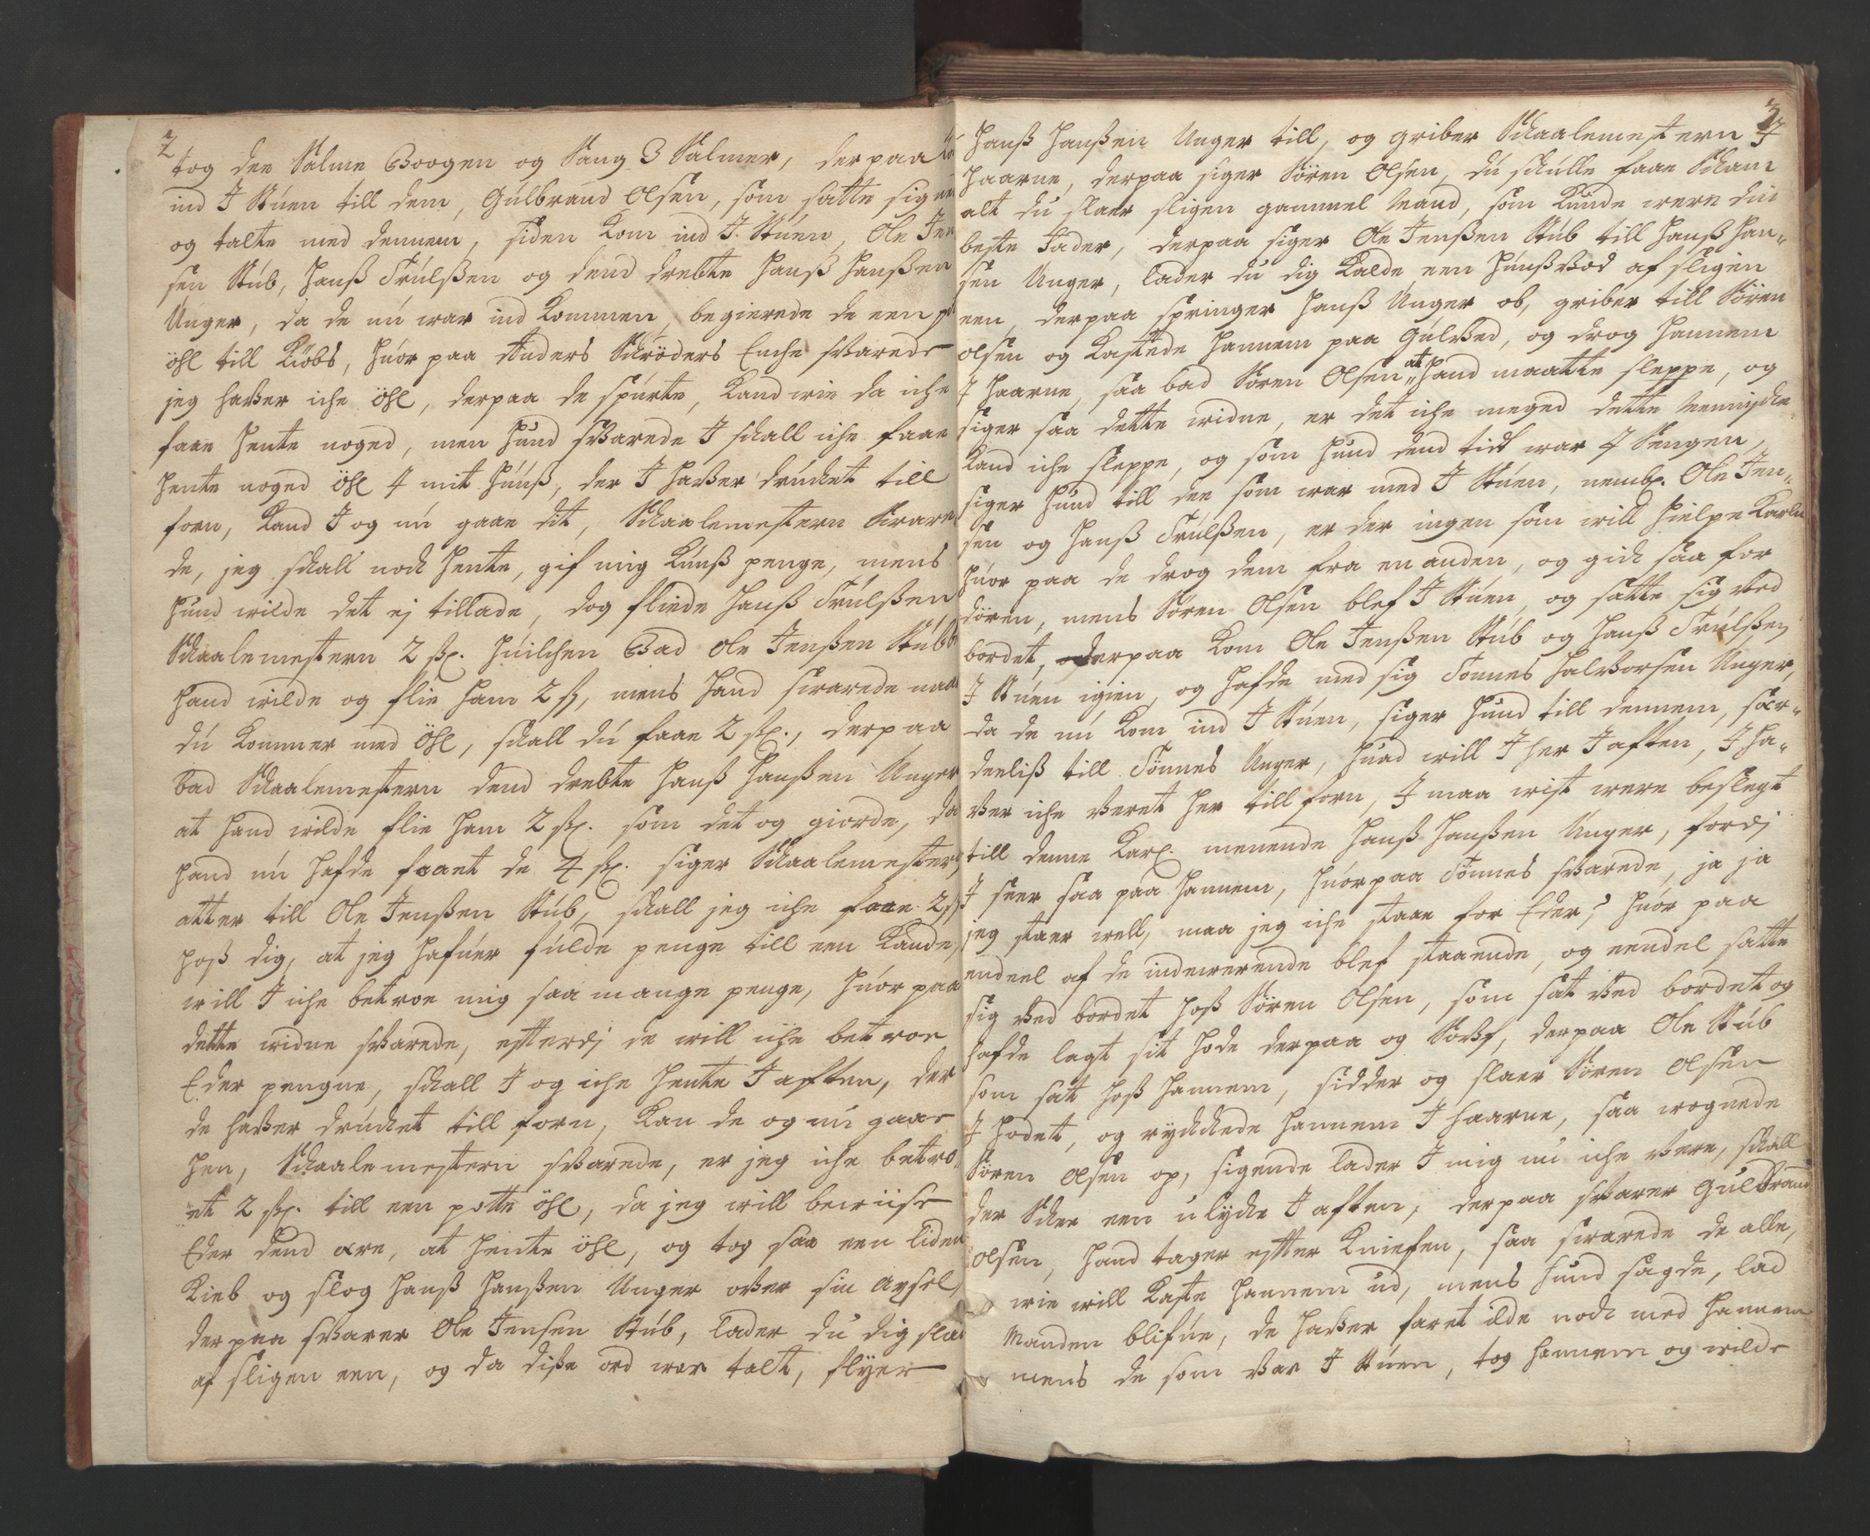 2
tog dee Salme Boogen og Sang 3 Salmer, derpaa
ind J Stúen till dem, Gúlbrand Olsen, som satte sig
og talte med dennem, siden kom ind J Stúen, Ole Jen
sen Stúb, Hanß Trúlßen og dend drebte Hanß Hanßen
Unger, da de nú war ind kommen, begierede de een
öhl till kiöbs, húor paa Anders Schröders Enche swarede
jeg haffuer iche Öhl, derpaa de spúrte, kand wie da iche
faae hente noged, men hund swarede J schall iche faae
hente noged öhl J mit húúß, der J haffuer drúcket till
forn, kand J og nú gaae dit, Schaalemestern sware
de, jeg schall noch hente, gif mig kúnß penge, mens
hund wilde det ej tillade, dog fliede Hanß Trúlßen
Schaalemestern 2 sk. húilchen bad Ole Jenßen Stúb
hand wilde og flie ham 2 sk, mens hand swarede naar
dú kommer med Öhl, schall dú faae 2 sk., derpaa
bad Schaalemestern dend drebte Hanß Hanßen Unger
at hand wilde flie ham 2 sk. som det og giorde, da
hand nú hafde faaet de 4 sk. siger Schaalemestern
atter till Ole Jenßen Stúb, schall jeg iche faae 2 sk
hoß dig, at jeg hafúer fúlde penge till een kande,
will J iche betroe mig saa mange penge, húor paa
dette widne swarede, efterdj de will iche betroe
Eder pengne, schall J og iche hente J aften, der
de haffuer drúcket till forn, kan de og nú gaae
hen, Schaalemestern swarede, er jeg iche betro
et 2 sk. till een potte öhl, da jeg will bewiise
Eder dend ære, at hente öhl, og tog saa een liden
kieb og slog Hanß Hanßen Unger offuer sin Axsel,
derpaa swarer Ole Jensen Stúb, lader dú dig slaa
af sligen een, og da diße ord war talt, flyer
3
Hanß Hanßen Unger till, og griber Schaalemestern J
haarne, derpaa siger Sören Olsen, dú schulle faae Skam
alt dú slaer sligen gammel mand, som kúnde were din
beste fader, derpaa siger Ole Jenßen Stúb till Hanß Han-
sen Unger, lader dú dig kalde een húnßvod af sligen
een, derpaa springer Hanß Unger ob, griber till Sören
Olsen og kastede hannem paa Gúlffuet, og drog hannem
J haarne, saa bad Sören Olsen at hand maatte sleppe, og
siger saa dette widne, er det iche meged dette mennische
kand iche sleppe, og som hund dend tid war J Sengen,
siger hund till dee som war med J Stúen, nembl. Ole Jen-
sen og Hanß Trúlßen, er der ingen som will hielpe karlen
húor paa de drog dem fra en anden, og gich saa for
dören, mens Sören Olsen blef J Stúen, og satte sig wed
bordet, derpaa kom Ole Jenßen Stúb og Hanß Trúlßen
J Stúen igien, og hafde med sig Tönnes Halvorsen Unger,
da de nú kom ind J Stúen, siger hund till dennem, sær-
deeliß till Tönnes Unger, húad will J her J aften, J ha-
ffuer iche weret her till forn, J maa wist were beslegt
till denne karl. menende Hanß Hanßen Unger, fordj
J seer saa paa hannem, húorpaa Tönnes swarede, ja ja
jeg staer well, maa jeg iche staae for Eder? húor paa
endeel af de indewerende blef staaende, og eendel satte
sig wed bordet hoß Sören Olsen, som sat wed bordet og
hafde lagt sit hode derpaa og Soff, derpaa Ole Stúb
som sat hoß hannem, sidder og slaer Sören Olsen
J hodet, og ryckede hannem J haarne, saa wognede
Sören Olsen op, sigende lader J mig nú iche were, schall
der Schee een ulycke J aften, derpaa swarer Gúlbrand
Olsen, hand tager efter kniefen, saa swarede de alle,
wie will kaste hannem ud, mens hund sagde, lad
manden blifúe, de haffuer faret ilde noch med hannem
mens de som war J Stúen, tog hannem og wilde